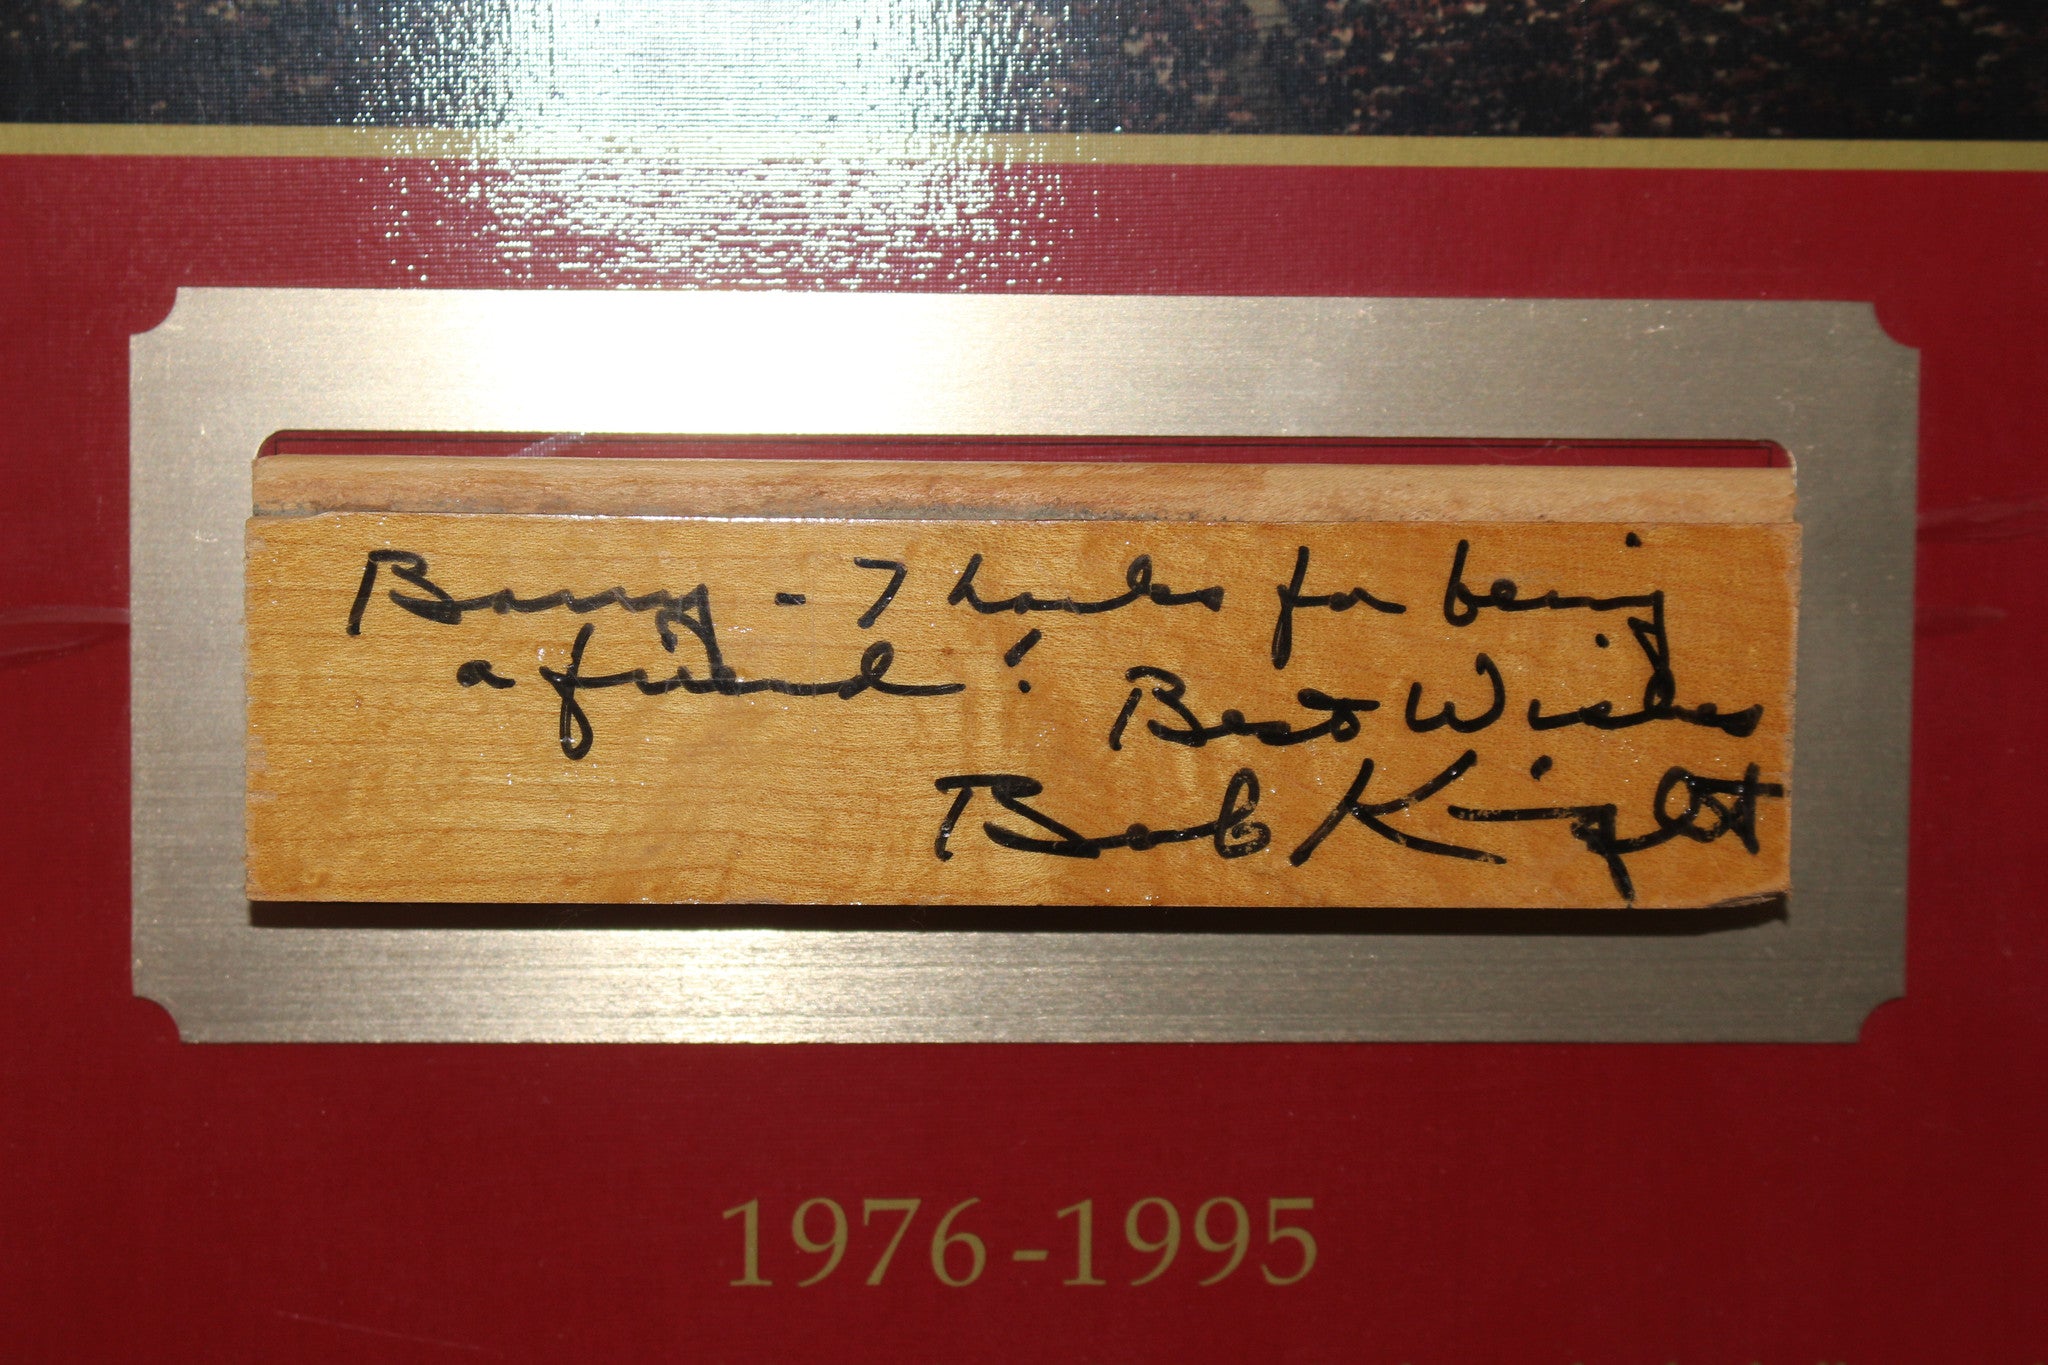 Barry - Thanks for being
a friend! Best Wishes
Bob Knight
1976-1995